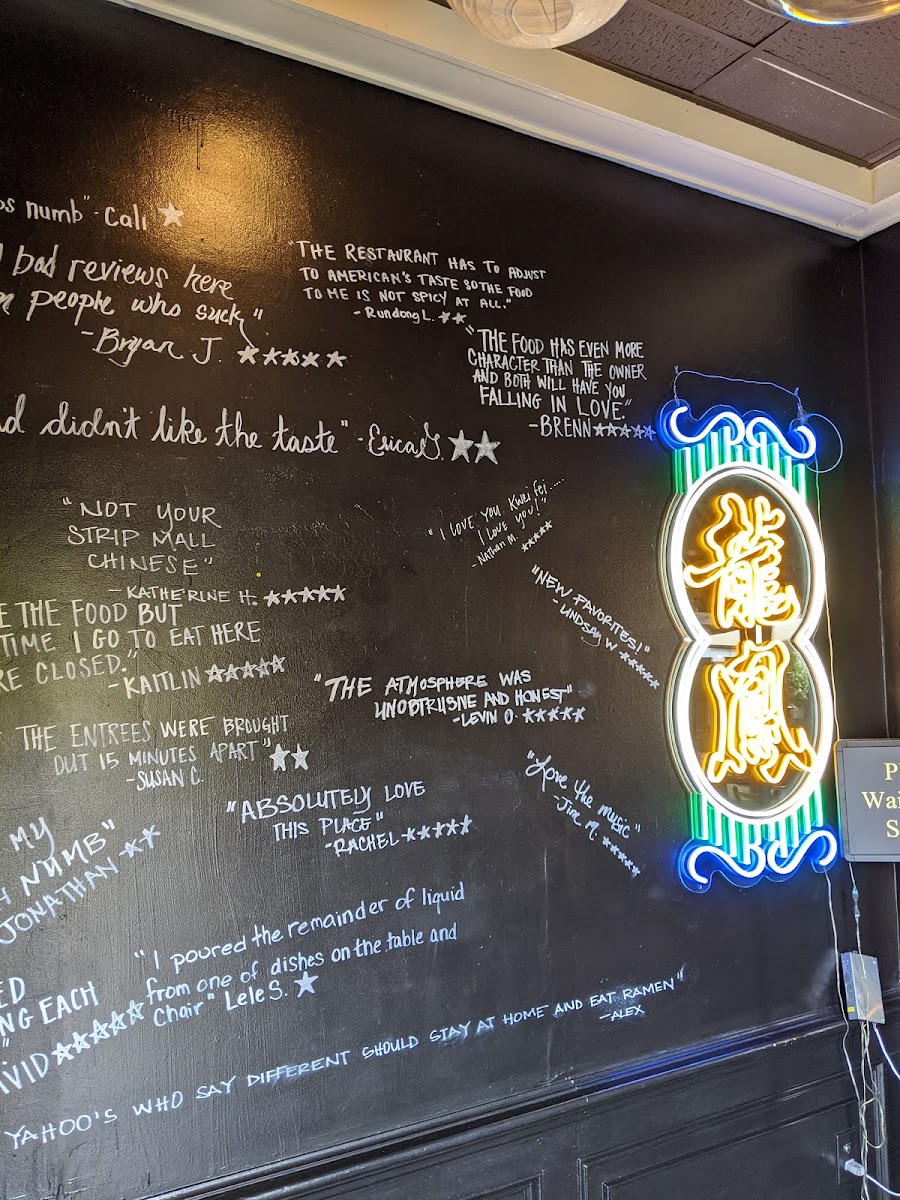 numb" - Cali ★
bad reviews here
people who suck"
- Bryan J. ★★★★★
"THE RESTAURANT HAS TO ADJUST
TO AMERICAN'S TASTE SO THE FOOD
TO ME IS NOT SPICY AT ALL."
- Rundong L. ★★
"THE FOOD HAS EVEN MORE
CHARACTER THAN THE OWNER
AND BOTH WILL HAVE YOU
FALLING IN LOVE."
- BRENN ★★★★★
didn't like the taste" - Erica G. ★★
"NOT YOUR
STRIP MALL
CHINESE"
- KATHERINE H. ★★★★★
"I LOVE YOU Kwei fei....
I LOVE YOU!"
- Nathan M. ★★★★★
"NEW FAVORITES!"
- LINDSAY W ★★★★★
THE FOOD BUT
TIME I GO TO EAT HERE
CLOSED."
- KAITLIN ★★★★★
"THE ATMOSPHERE WAS
UNOBTRUSIVE AND HONEST"
- LEVIN O. ★★★★★
THE ENTREES WERE BROUGHT
OUT 15 MINUTES APART" ★★
- SUSAN C.
"ABSOLUTELY LOVE
THIS PLACE"
- RACHEL ★★★★★
"Love the music"
- Jim M. ★★★★★
MY
NUMB"
JONATHAN ★★
"I poured the remainder of liquid
from one of dishes on the table and
chair" Lele S. ★
EACH
★★★★★
YAHOO'S WHO SAY DIFFERENT SHOULD STAY AT HOME AND EAT RAMEN"
- ALEX
龍
鳳